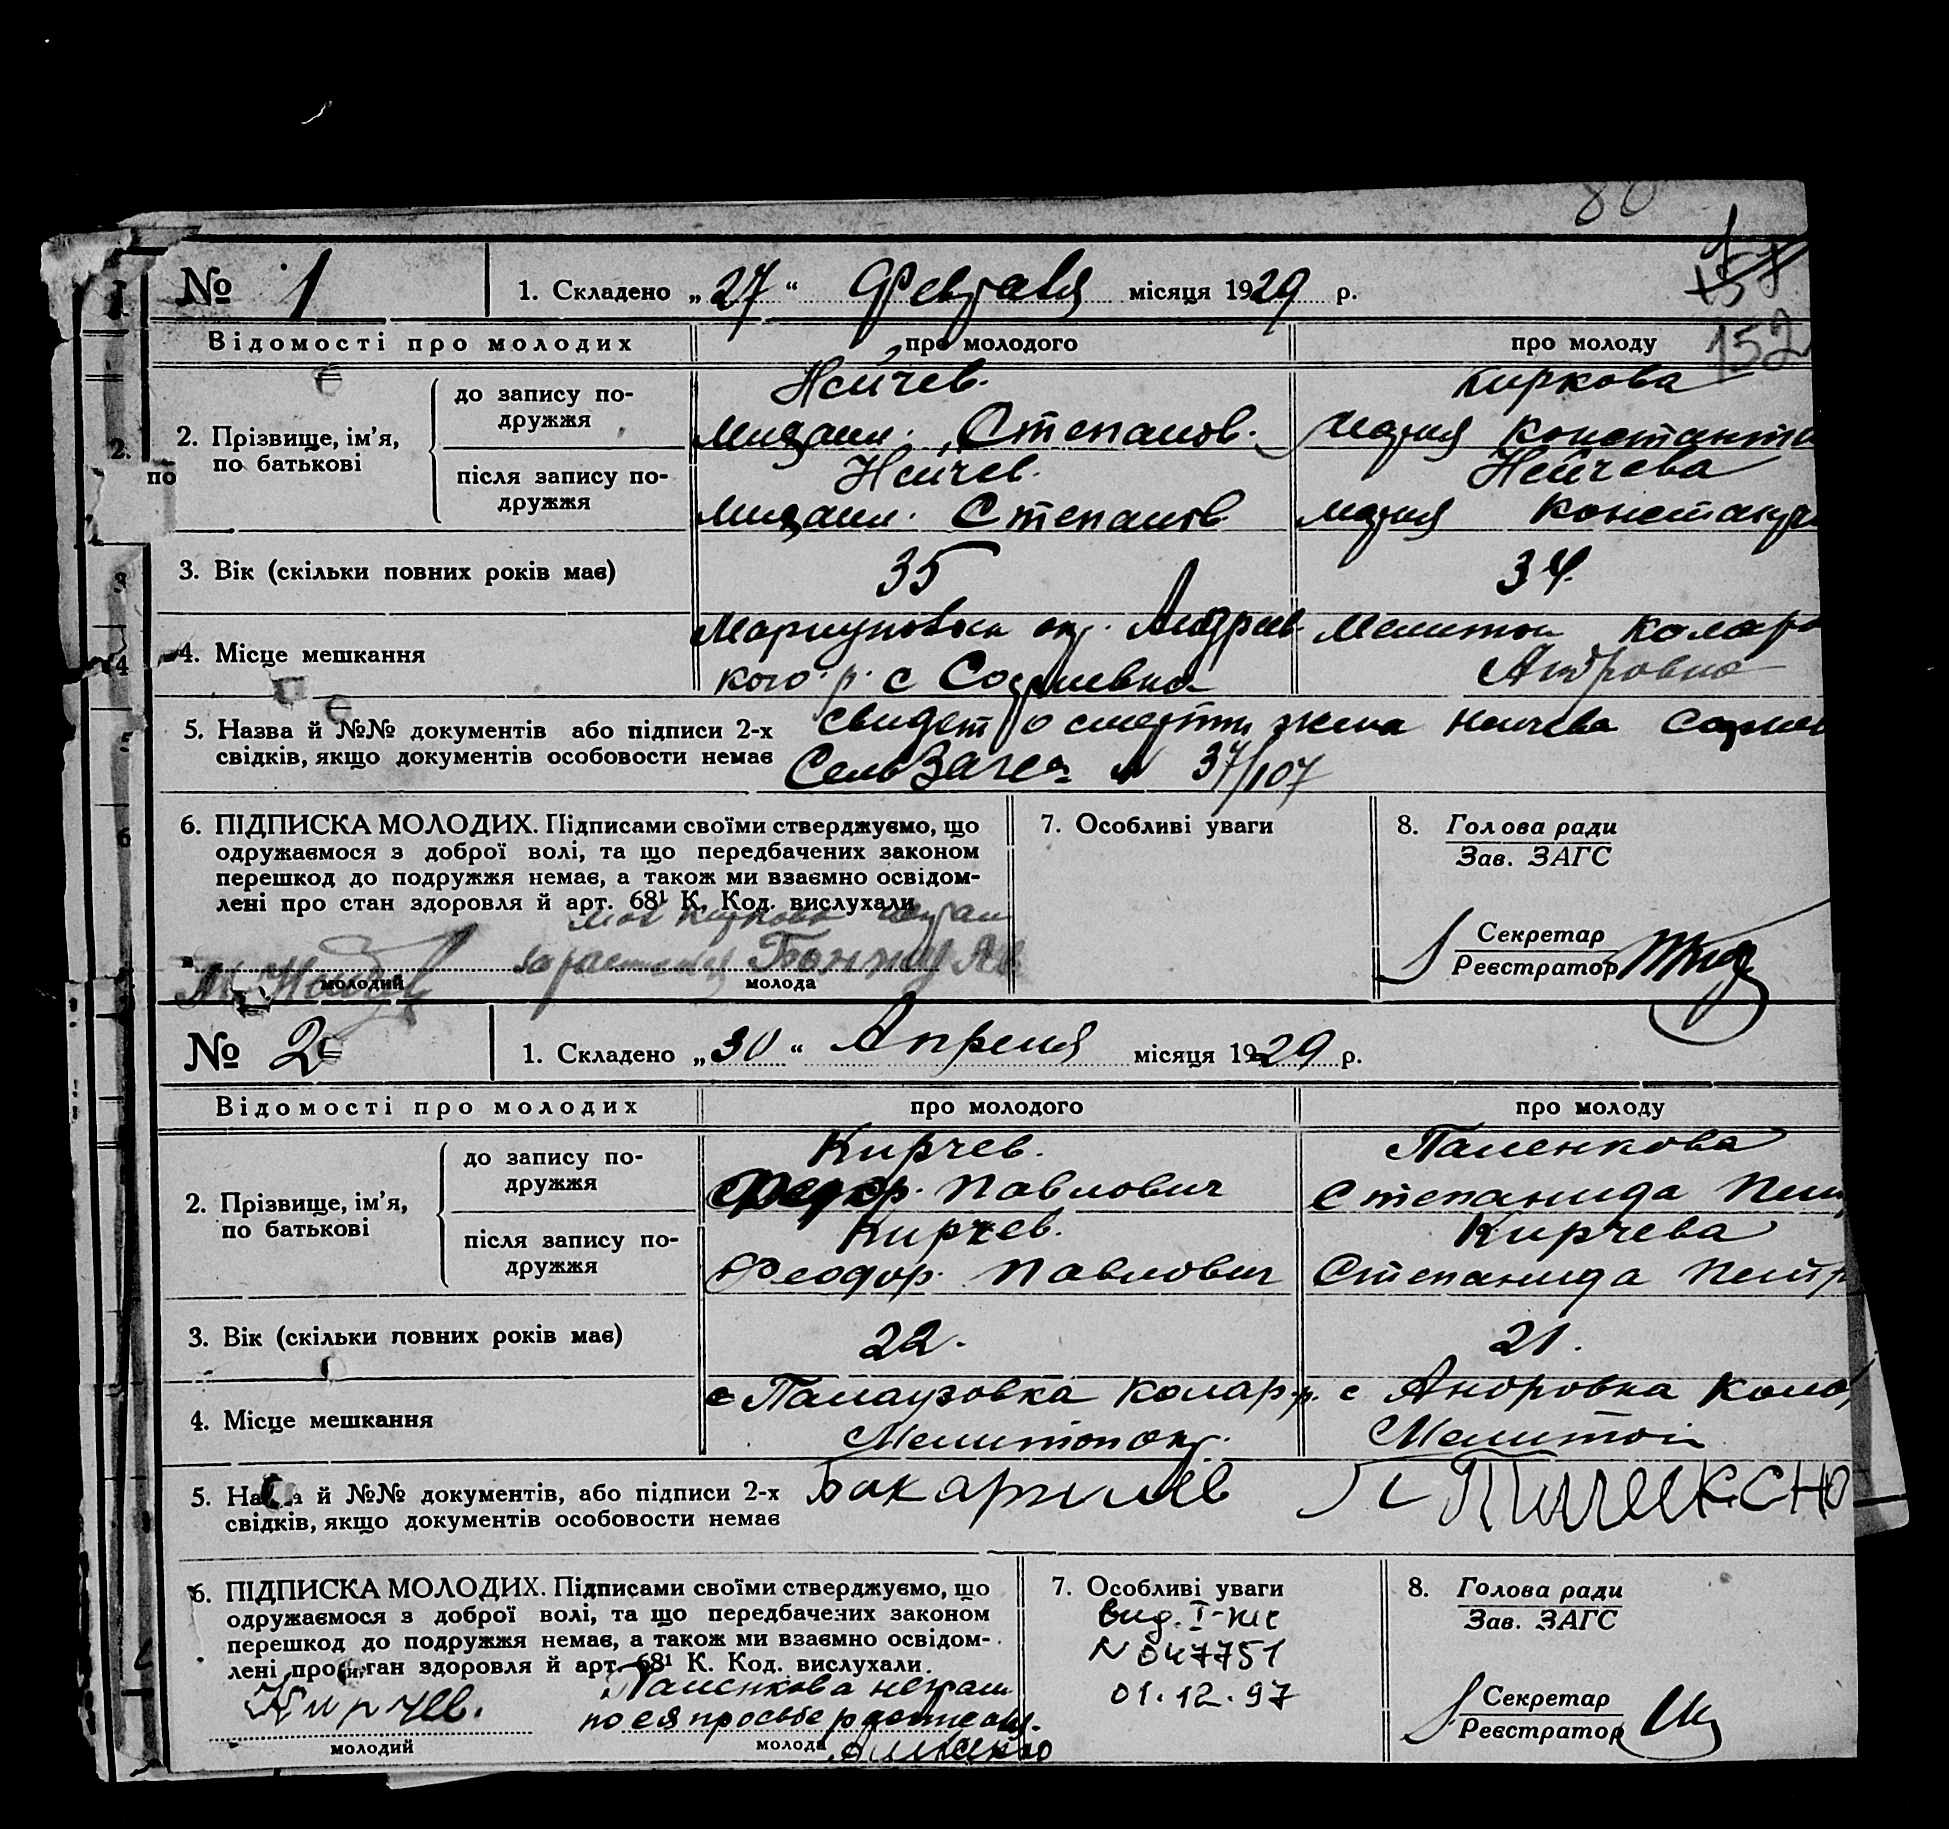 80
№ 1 1. Складено „27“ Февраля місяця 1929 р.
152
Відомості про молодих про молодого про молоду
2. Прізвище, ім’я, по батькові
до запису подружжя
Нейчев. Киркова
Михаил. Степанов. Мария Констант
після запису по-
дружжя
Нейчев. Нейчева
Михаил. Степанов Мария
3. Вік (скільки повних років має) 35 34.
4. Місце мешкання
Мариуповск окр. Андреев Мелитоп Колар
кого р. с Андровка
5. Назва й №№ документів або підписи 2-х
свідків, якщо документів особовости немає
свидет о смерти жена Нейчева
№ 37/107
6. ПІДПИСКА МОЛОДИХ. Підписами своїми стверджуємо, що
одружаємося з доброї волі, та що передбачених законом
перешкод до подружжя немає, а також ми взаємно освідом-
лені про стан здоровля й арт. 68¹ К. Код. вислухали
Киркова
молодий молода
7. Особливі уваги
8. Голова ради
Зав. ЗАГС
Секретар
Реєстратор
№ 2 1. Складено „30“ Апреля місяця 1929 р.
Відомості про молодих про молодого про молоду
2. Прізвище, ім’я,
по батькові
до запису по-
дружжя
Кирчев. Паленкова
Федор. Павлович Степанида
після запису по-
дружжя
Кирчев. Кирчева
Феодор. Павлович Степанида Петр
3. Вік (скільки повних років має) 22. 21.
4. Місце мешкання
с Палаузовка Колар. р. с Андровка Кола
Мелитоп окр. Мелитоп
5. Назва й №№ документів, або підписи 2-х
свідків, якщо документів особовости немає
6. ПІДПИСКА МОЛОДИХ. Підписами своїми стверджуємо, що
одружаємося з доброї волі, та що передбачених законом
перешкод до подружжя немає, а також ми взаємно освідом-
лені про стан здоровля й арт. 68¹ К. Код. вислухали.
Кирчев. Паленкова неграм
по ея просьбе
молодий молода
7. Особливі уваги
вид. I-
N 047751
01.12.97
8. Голова ради
Зав. ЗАГС
Секретар
Реєстратор